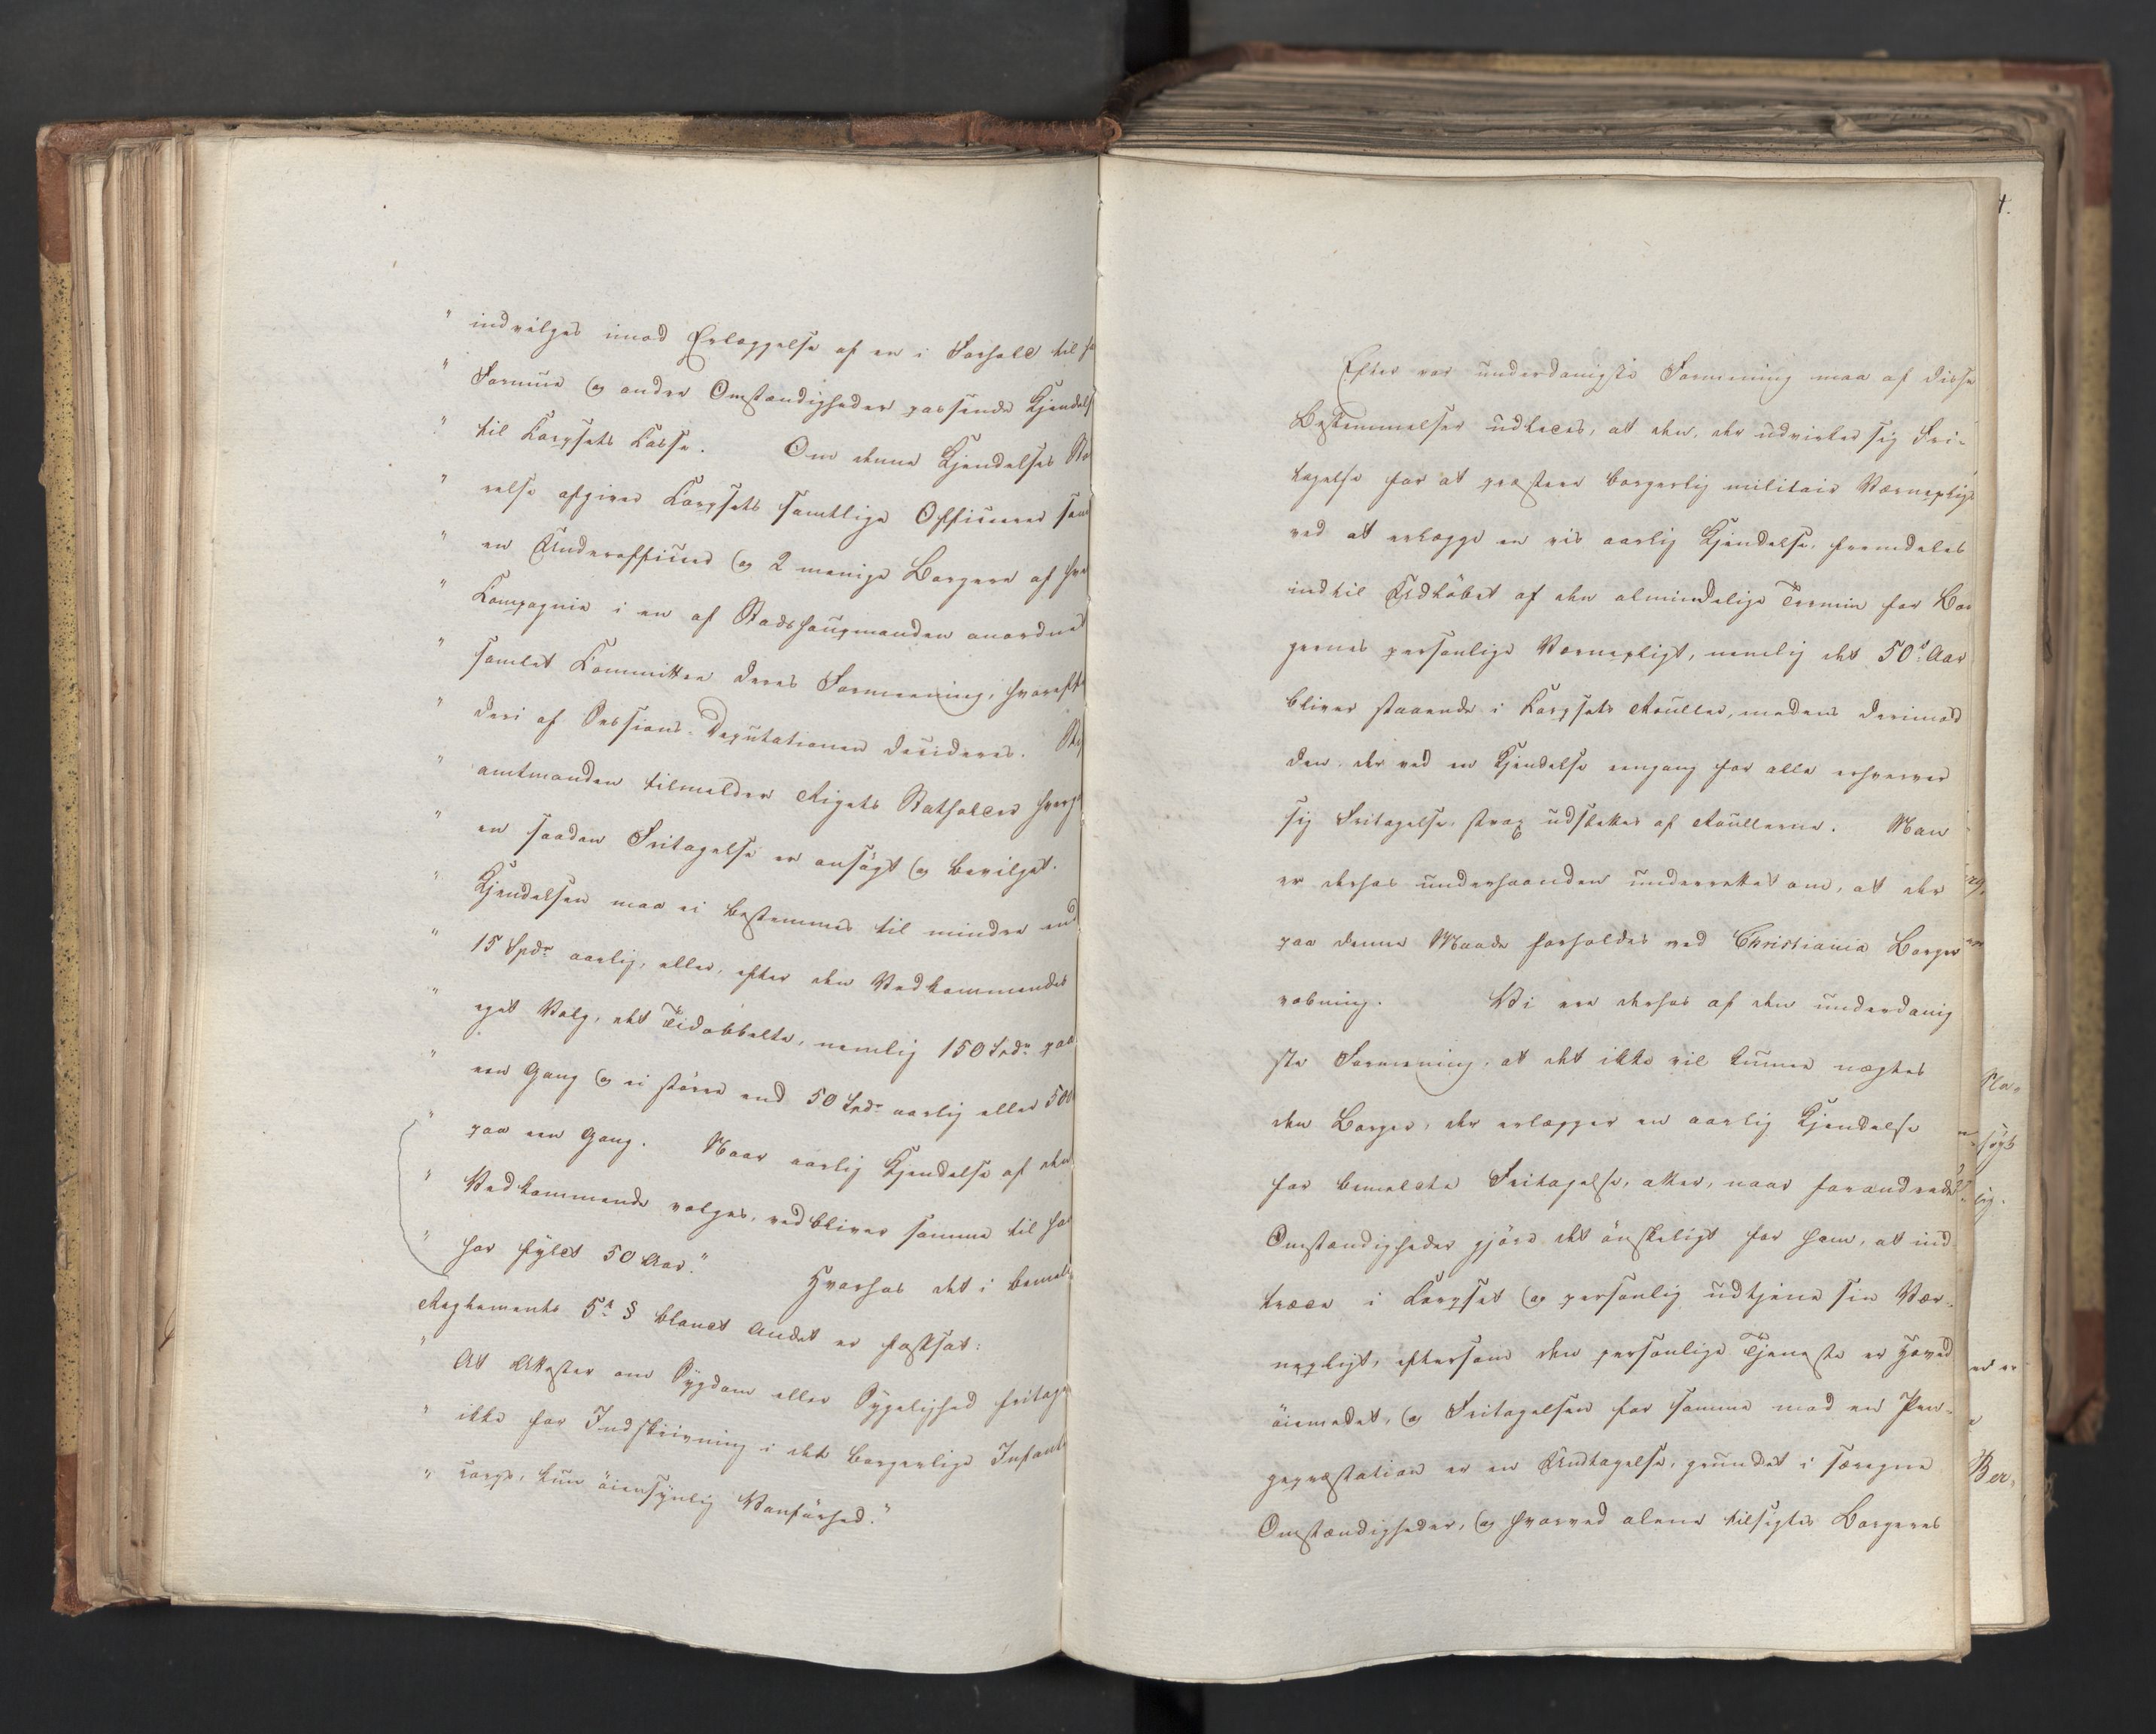 " indvilges imod Erlæggelse af en i Forhold til
" Formue og andre Omstændigheder passende Kjendels
" til Korpsets Kasse. Om denne Kjendelses Stø
" relse afgiver Korpsets samtlige Officerer sam
" en Underofficeer og 2 menige Borgere af hve
" Kompagnie i en af Stadshauptmanden anordnet
" samlet Committee deres Formeening, hvoreft
" deri af Sessions-Deputationen decideres. Sti
" amtmanden tilmelder Rigets Statholder hverg
" en saadan Fritagelse er ansøgt og bevilget.
" Kjendelsen maa ei bestemmes til mindre end
" 15 Spdr aarlig, eller, efter den Vedkommendes
" eget Valg, det Tidobbelte, nemlig 150 Spdr paa
" een Gang og ei større end 50 Spdr aarlig eller 500
" paa een Gang. Naar aarlig Kjendelse af den
" Vedkommende vælges, vedbliver samme til han
" har fyldt 50 Aar." Hvorhos det i bemeld
Reglements 5te § blandt Andet er fastsat:
" At Attester om Sygdom eller Sygelighed fritage
" ikke for Indskrivning i det borgerlige Infante
" corps, kun øiensynlig Vanførhed."
Efter vor underdanigste Formening maa af disse
Bestemmelser udledes, at den, der udvirker sig Fri-
tagelse for at præstere borgerlig militair Værnepligt
ved at erlægge en vis aarlig Kjendelse, fremdeles
indtil Udløbet af den almindelige Termin for Bor
gernes personlige Værnepligt, nemlig det 50de Aar
bliver staaende i Korpsets Rouller, medens derimod
den, der ved en Kjendelse eengang for alle erhverver
sig Fritagelse, strax udslettes af Roullerne. Man
er derhos underhaanden underrettet om, at der
paa denne Maade forholdes ved Christiania Borger
væbning. Vi ere derhos af den underdanig
ste Formening, at det ikke vil kunne nægtes
den Borger, der erlægger en aarlig Kjendelse
for bemeldte Fritagelse, atter, naar forandrede
Omstændigheder gjøre det ønskeligt for ham, at ind
træde i Korpset og personlig udtjene sin Vær-
nepligt, eftersom den personlige Tjeneste er Hoved
øiemedet, og Fritagelsen for samme mod en Pen-
gepræstation er en Undtagelse, grundet i særegne
Omstændigheder, og hvorved alene tilsigtes Borgeres